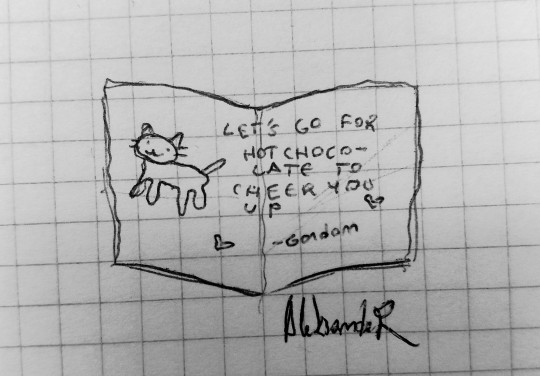 LET'S GO FOR
HOT CHOCO-
LATE TO
CHEER YOU
UP
-Gordom
AleksandeR